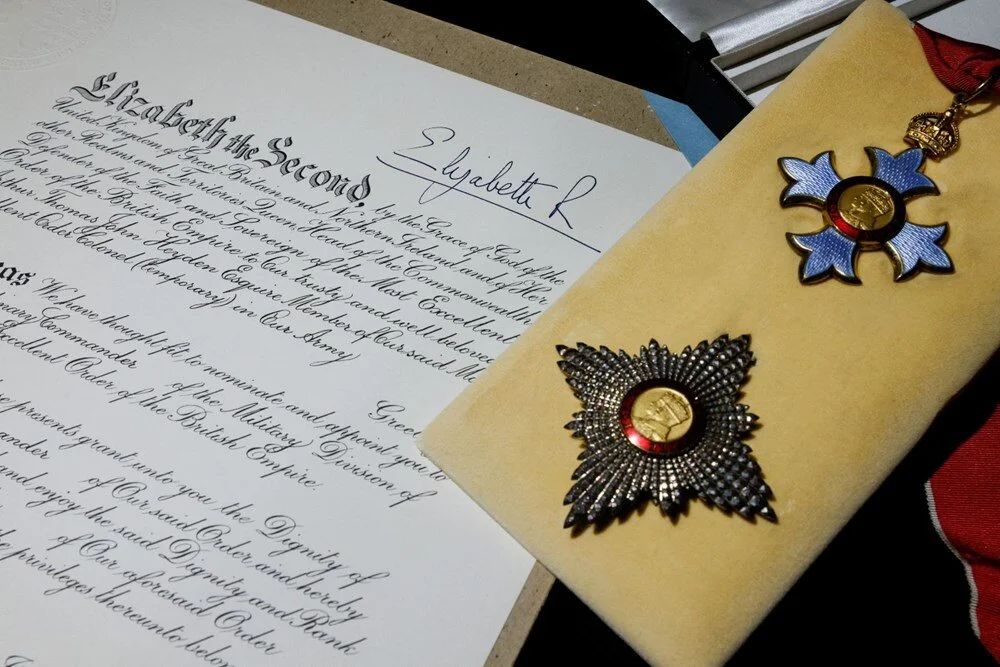 Elizabeth the Second,
Elizabeth R
by the Grace of God of the
United Kingdom of Great Britain and Northern Ireland and of Her
other Realms and Territories Queen, Head of the Commonwealth,
Defender of the Faith and Sovereign of the Most Excellent
Order of the British Empire to Our trusty and well beloved
Thomas John Heyden Esquire Member of Our said M
Order Colonel (temporary) in Our Army
Gree
We have thought fit to nominate and appoint you to
Commander of the Military Division of
Order of the British Empire.
presents grant unto you the Dignity of
of Our said Order and hereby
and enjoy the said Dignity and Rank
of Our aforesaid Order
privileges thereunto